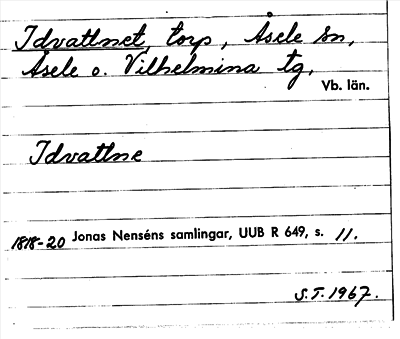 Idvattnet, torp, Åsele sn,
Åsele o. Vilhelmina tg,
Vb. län.
Idvattne
1818-20 Jonas Nenséns samlingar, UUB R 649, s. 11.
S.T. 1967.